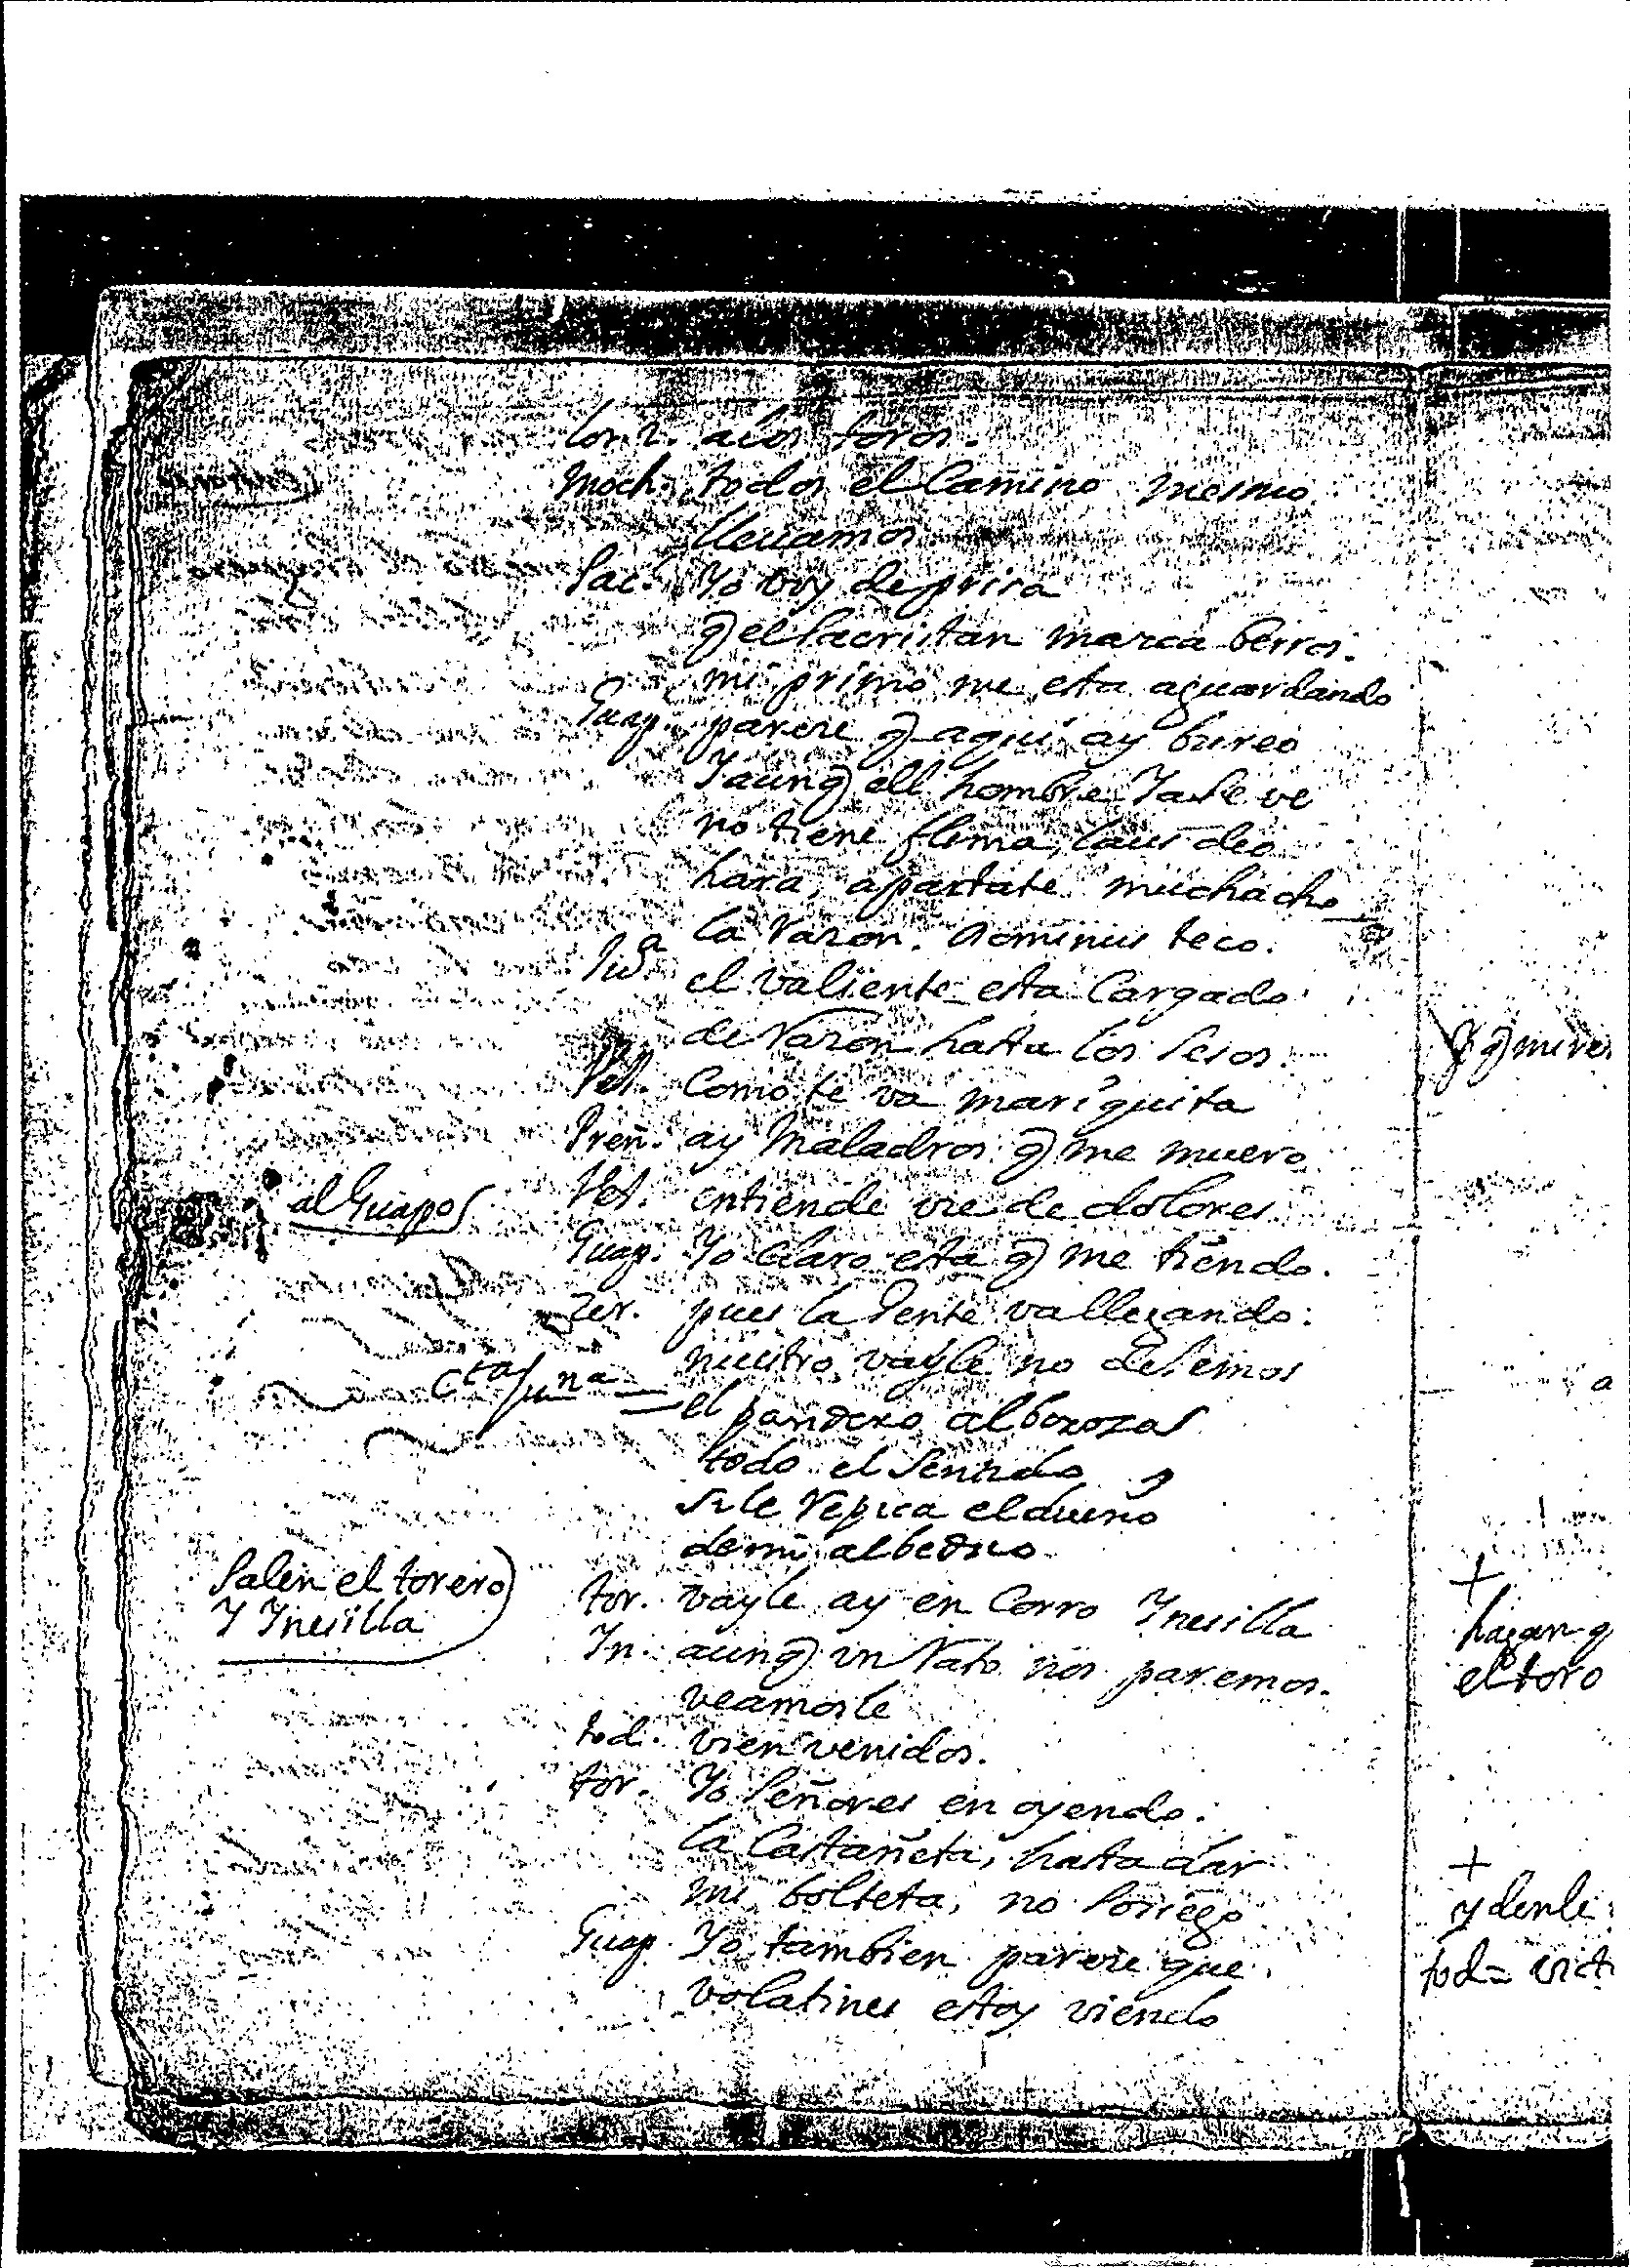 los 2. a los toros.
Moch. todos el Camino mesmo
lleuamos
Sac. Yo voy de prisa
q el Sacristan marca berros.
mi primo me esta aguardando
Guap. parece q aqui ay bureo
Y aunq ell hombre Ya se ve
no tiene flema, laus deo
hara, apartate muchacho
la razon. Dominus teco.
el valiente esta Cargado
de razon hasta los sesos.
Vet. Como te va mariquita
Preñ. ay Maladros q me muero
al Guapo Vet. entiende vse de dolores
Guap. Yo Claro esta q me tiendo.
ter. pues la Jente va llegando.
nuestro vayle no dejemos
Cta Juna el pandero alboroza
todo el sentido
si le repica el dueño
de mi albedrio
Salen el torero
Y Ynesilla
tor. vayle ay en Corro Ynesilla
Yn. aunq vn rato nos paremos.
veamosle
tod. vien venidos.
tor. Yo Señores en oyendo.
la Castañeta, hasta dar
mi bolteta, no sosiego
Guap. Yo tambien parece que
volatines estoy viendo
q mire
hagan q
el toro
y denle
tod = vict